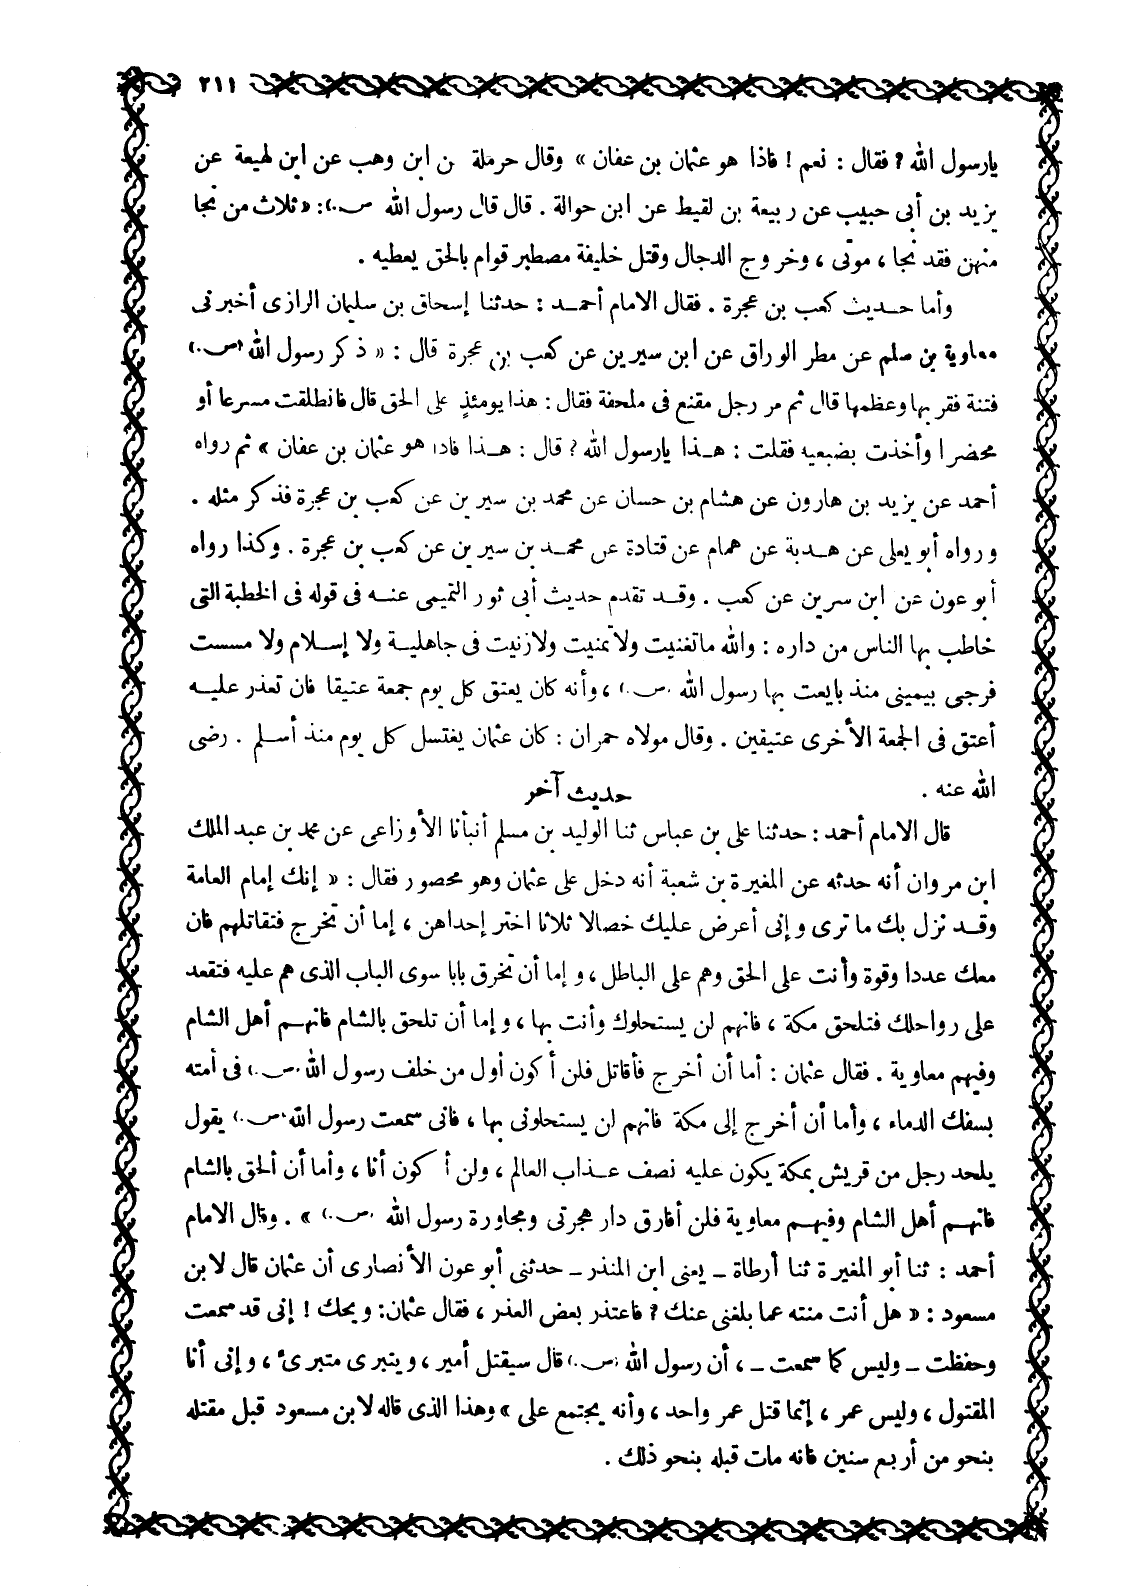 ٢١١
يارسول الله ? فقال : نعم ! فاذا هو عثمان بن عفان » وقال حرملة ن ابن وهب عن ابن لهيعة عن
يزيد بن أبى حبيب عن ربيعة بن لقيط عن ابن حوالة . قال قال رسول الله (ص) : « ثلاث من نجا
منهن فقد نجا ، موتى ، وخروج الدجال وقتل خليفة مصطبر قوام بالحق يعطيه .
وأما حديث كعب بن عجرة . فقال الامام أحمد : حدثنا إسحاق بن سليمان الرازى أخبرنى
معاوية بن سلم عن مطر الوراق عن ابن سيرين عن كعب بن عجرة قال : « ذكر رسول الله (ص)
فتنة فقر بها وعظمها قال ثم مر رجل مقنع فى ملحفة فقال : هذا يومئذٍ على الحق قال فانطلقت مسرعا أو
محضرا وأخذت بضبعيه فقلت : هذا يارسول الله ? قال : هذا فاذا هو عثمان بن عفان » ثم رواه
أحمد عن يزيد بن هارون عن هشام بن حسان عن محمد بن سيرين عن كعب بن عجرة فذكر مثله .
ورواه أبو يعلى عن هدبة عن همام عن قتادة عن محمد بن سيرين عن كعب بن عجرة . وكذا رواه
أبو عون عن ابن سرين عن كعب . وقد تقدم حديث أبى ثور التميمى عنه فى قوله فى الخطبة التى
خاطب بها الناس من داره : والله ماتغنيت ولا تمنيت ولازنيت فى جاهلية ولا إسلام ولا مسست
فرجى بيمينى منذ بايعت بها رسول الله (ص) ، وأنه كان يعتق كل يوم جمعة عتيقا فان تعذر عليه
أعتق فى الجمعة الأخرى عتيقين . وقال مولاه حمران : كان عثمان يغتسل كل يوم منذ أسلم . رضى
الله عنه .
حديث آخر
قال الامام أحمد : حدثنا على بن عباس ثنا الوليد بن مسلم أنبأنا الأوزاعى عن محمد بن عبد الملك
ابن مروان أنه حدثه عن المغيرة بن شعبة أنه دخل على عثمان وهو محصور فقال : « إنك إمام العامة
وقد نزل بك ما ترى وإنى أعرض عليك خصالا ثلاثا اختر إحداهن ، إما أن تخرج فتقاتلهم فان
معك عددا وقوة وأنت على الحق وهم على الباطل ، وإما أن تخرق بابا سوى الباب الذى هم عليه فتقعد
على رواحلك فتلحق مكة ، فانهم لن يستحلوك وأنت بها ، وإما أن تلحق بالشام فانهم أهل الشام
وفيهم معاوية . فقال عثمان : أما أن أخرج فأقاتل فلن أكون أول من خلف رسول الله (ص) فى أمته
بسفك الدماء ، وأما أن أخرج إلى مكة فانهم لن يستحلونى بها ، فانى سمعت رسول الله (ص) يقول
يلحد رجل من قريش بمكة يكون عليه نصف عذاب العالم ، ولن أكون أنا ، وأما أن ألحق بالشام
فانهم أهل الشام وفيهم معاوية فلن أفارق دار هجرتى ومجاورة رسول الله (ص) » . وقال الامام
أحمد : ثنا أبو المغيرة ثنا أرطاة ــ يعنى ابن المنذر ــ حدثنى أبو عون الأنصارى أن عثمان قال لابن
مسعود : « هل أنت منته عما بلغنى عنك ? فاعتذر بعض العذر ، فقال عثمان : ويحك ! إنى قد سمعت
وحفظت ــ وليس كما سمعت ــ ، أن رسول الله (ص) قال سيقتل أمير ، ويتبرى متبرئ ، وإنى أنا
المقتول ، وليس عمر ، إنما قتل عمر واحد ، وأنه يجتمع على » وهذا الذى قاله لابن مسعود قبل مقتله
بنحو من أربع سنين فانه مات قبله بنحو ذلك .